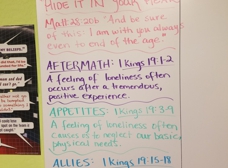 "HIDE IT IN YOUR HEART"
Matt 28:20b "And be sure
of this: I am with you always
even to end of the age."
AFTERMATH: 1 Kings 19:1-2
A feeling of loneliness often
occurs after a tremendous,
positive experience.
APPETITES: 1 Kings 19:3-9
A feeling of loneliness often
causes to neglect our basic
physical needs.
ALLIES: 1 Kings 19:15-18